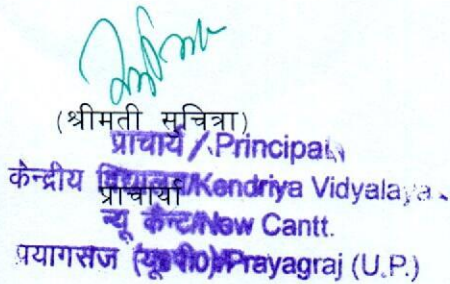 (श्रीमती सुचित्रा)
प्राचार्य / Principal
प्राचार्या
केन्द्रीय विद्यालय/Kendriya Vidyalaya
न्यू कैन्ट/New Cantt.
प्रयागराज (यू०पी०)/Prayagraj (U.P.)